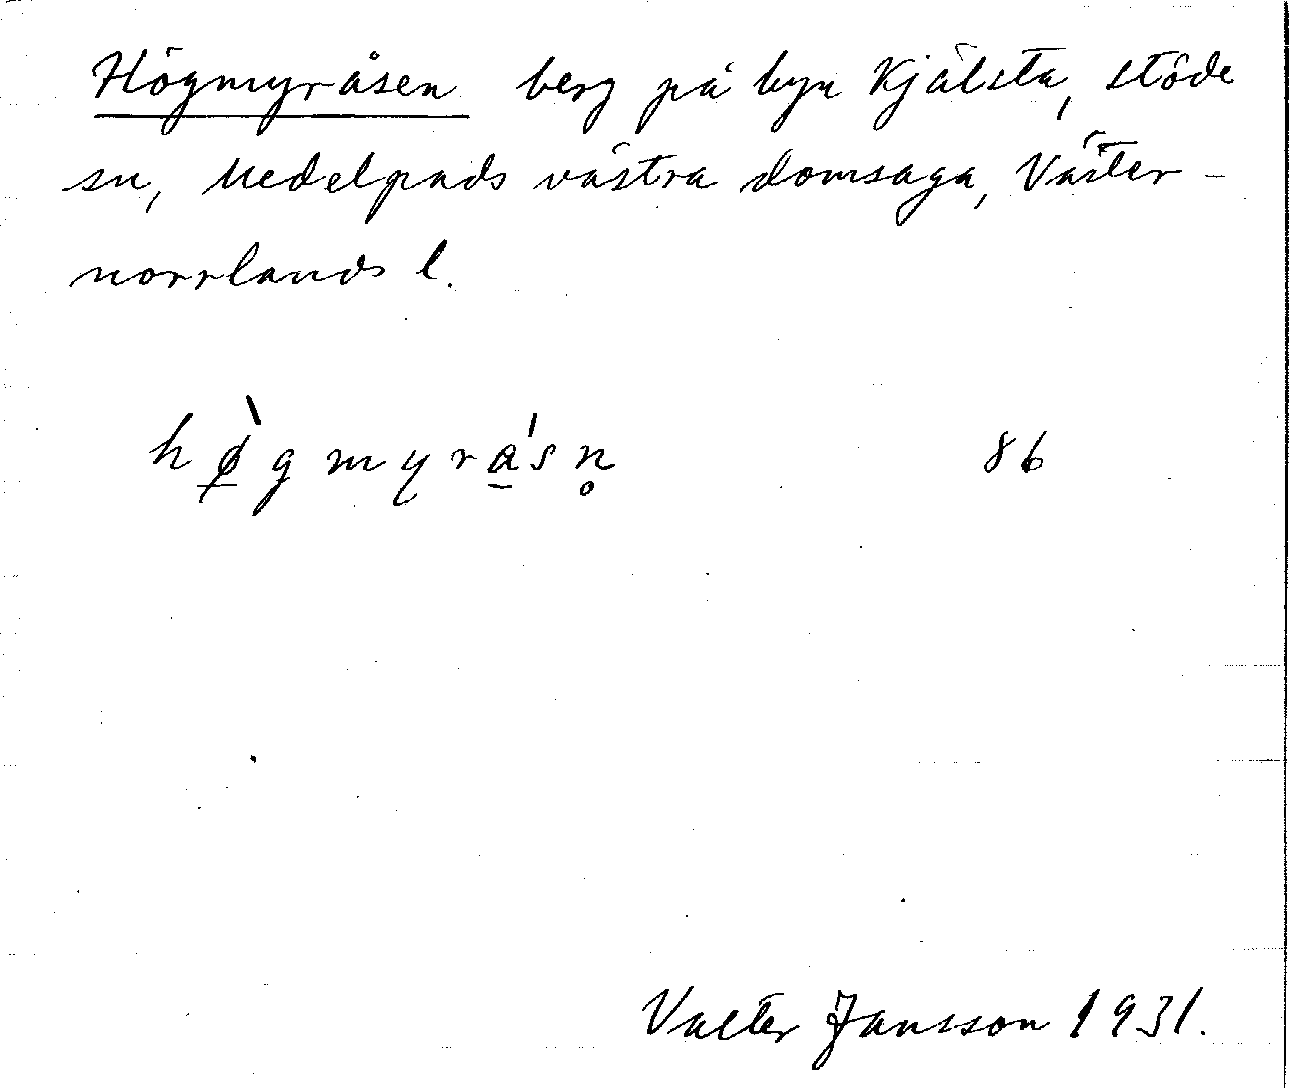 Högmyråsen berg på byn Kjälsta, Stöde
sn, Medelpads västra domsaga, Väster-
norrlands l.
hø̠̀gmyra̠'sn̥ 86
Valter Jansson 1931.